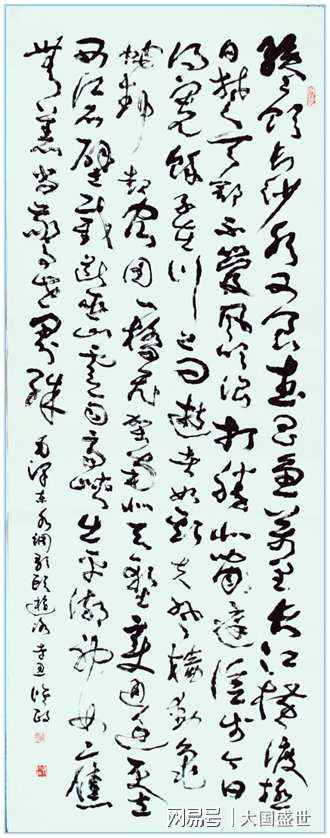 才饮长沙水又食武昌鱼万里长江横渡极
目楚天舒不管风吹浪打胜似闲庭信步今日
得宽余子在川上曰逝者如斯夫风樯动龟
蛇静起宏图一桥飞架南北天堑变通途更立
西江石壁截断巫山云雨高峡出平湖神女应
无恙当惊世界殊 毛泽东水调歌头游泳
网易号 | 大国盛世